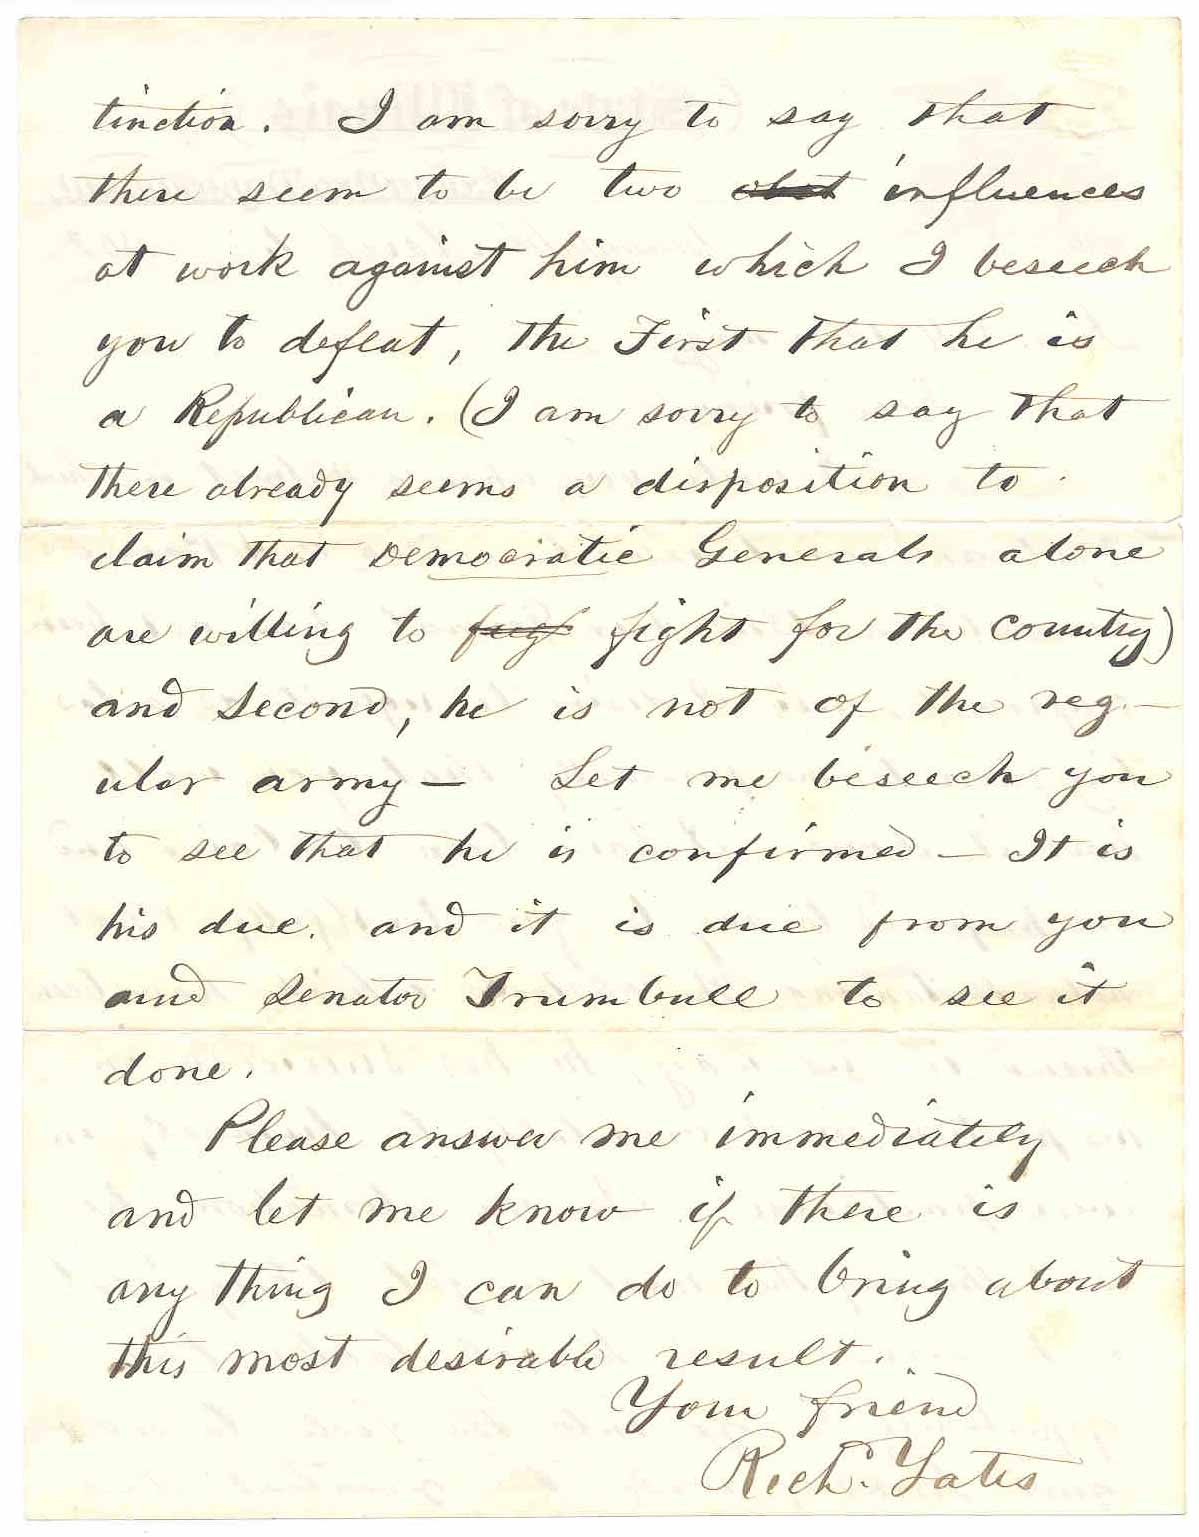 tinction. I am sorry to say that
there seem to be two influences
at work against him which I beseech
you to defeat, the First that he is
a Republican. (I am sorry to say that
there already seems a disposition to
claim that Democratic Generals alone
are willing to fight for the country)
and second, he is not of the reg-
ular army — Let me beseech you
to see that he is confirmed — It is
his due. and it is due from you
and Senator Trumbull to see it
done.
Please answer me immediately
and let me know if there is
any thing I can do to bring about
this most desirable result.
Your friend
Rich. Yates